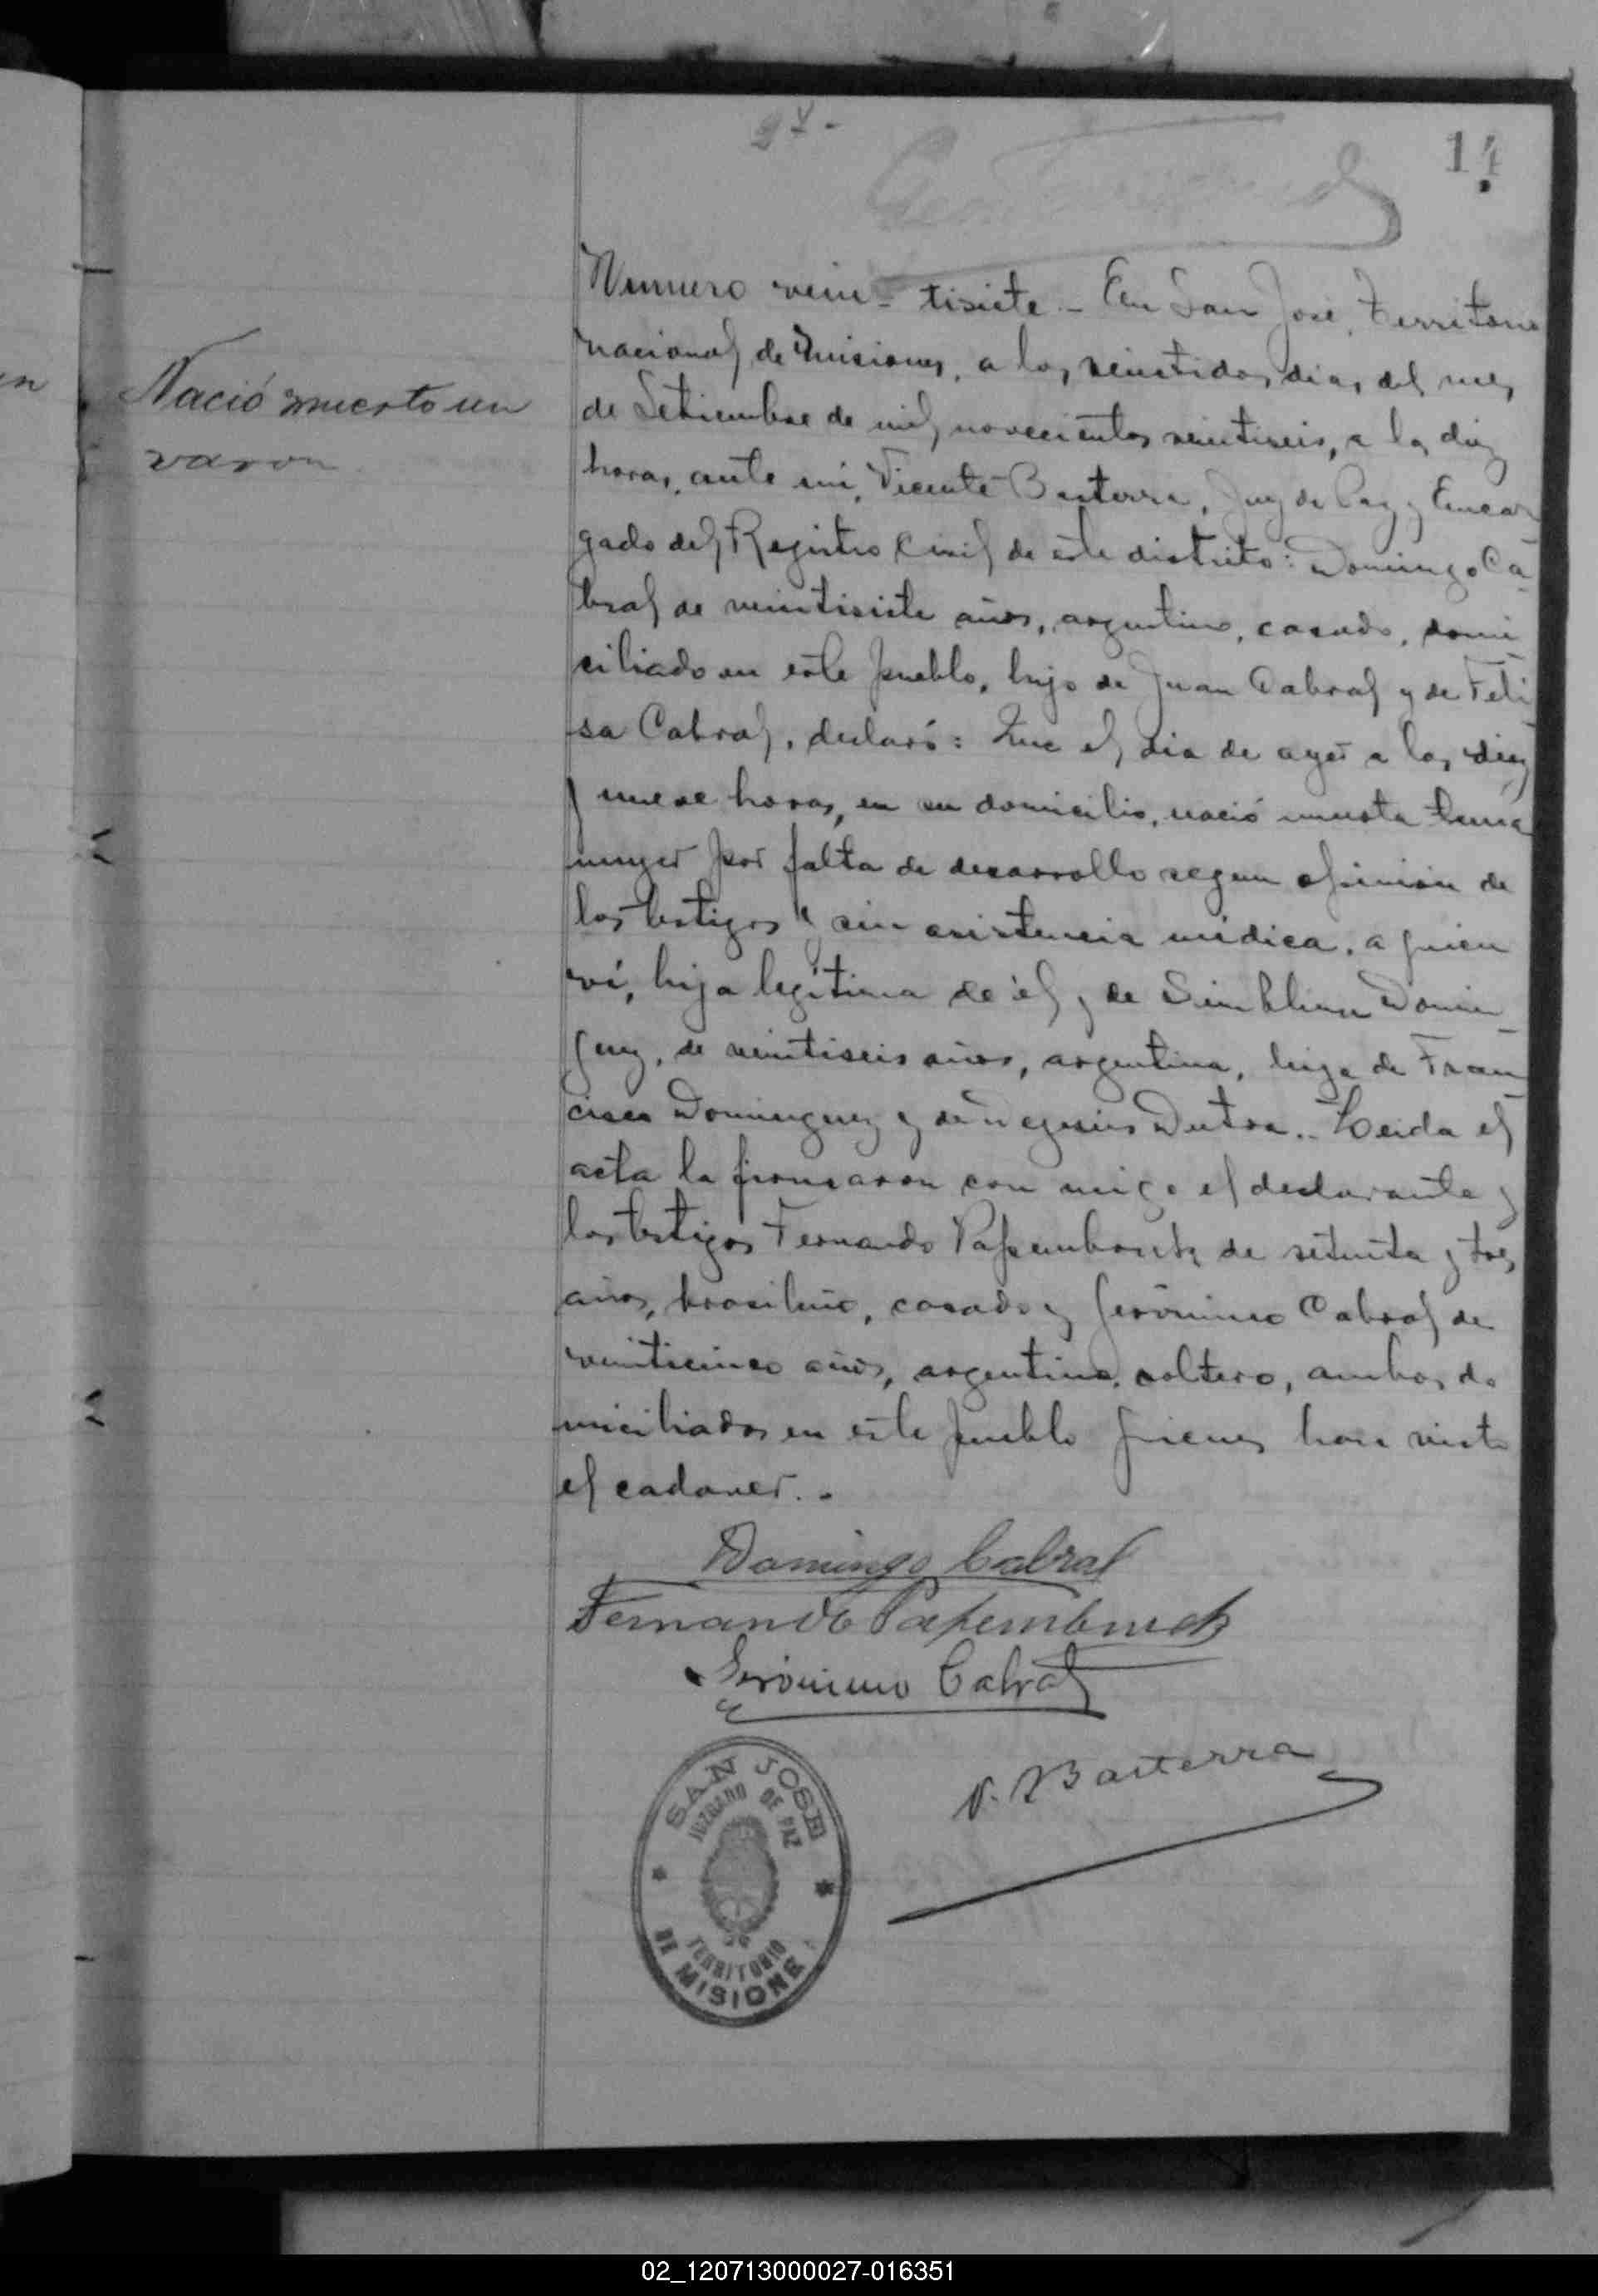 14
Nació muerto un
varon
Numero vein- tisiete - En San José, Territorio
nacional de Misiones, a los veintidos dias del mes
de Setiembre de mil novecientos veintiseis, a las diez
horas, ante mi, Vicente Basterra, Juez de Paz y Encar
gado del Registro Civil de este distrito: Domingo Ca-
bral de veintisiete años, argentino, casado, domi-
ciliado en este pueblo, hijo de Juan Cabral y de Feli-
sa Cabral, declaró: Que el dia de ayer a las diez
y nueve horas, en su domicilio, nació muerta una
mujer por falta de desarrollo segun opinión de
los testigos y sin asistencia médica, a quien
ví, hija legítima de él y de Domin-
guez, de veintiseis años, argentina, hija de Fran-
cisco Dominguez y de Dutra.. Leida el
acta la firmaron con migo el declarante y
los testigos Fernando Papembruck de setenta y tres
años, brasileño, casado y Gerónimo Cabral de
veinticinco años, argentino, soltero, ambos do
miciliados en este pueblo quienes han visto
el cadaver..
Domingo Cabral
Fernando Papembruck
Gerónimo Cabral
V. Basterra
SAN JOSE
JUZGADO DE PAZ
TERRITORIO
DE MISIONE
02_120713000027-016351